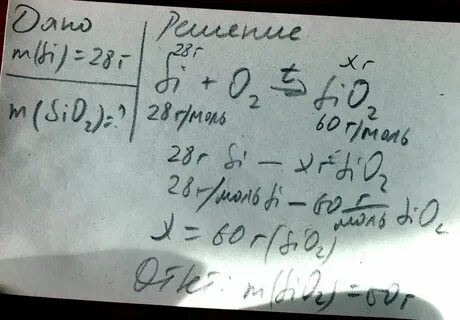 Дано
m(Si) = 28г
m(SiO2)=?
Решение
28г xг
Si + O2 t→ SiO2
28г/моль 60г/моль
28г Si — xг SiO2
28г/моль Si — 60 г/моль SiO2
x = 60 г (SiO2)
Ответ: m(SiO2) = 60г